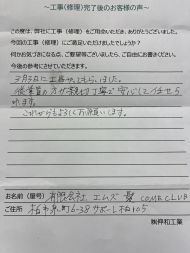 ～工事(修理)完了後のお客様の声～
この度は、弊社に工事(修理)をご用命いただき、ありがとうございました。
今回の工事(修理)にご満足いただけましたでしょうか？
何かお気づきになる点、ご要望等ございましたら、ご自由にお書きください。
今後の参考にさせていただきます。
工事
もらいました。
従業員の方が親切丁寧で安心して
れます。
これからもよろしくお願いします。
お名前(屋号) 有限会社 エムズ 髪 COME CLUB
ご住所 柏市泉町6-38 サポーレ柏105
㈱伸和工業